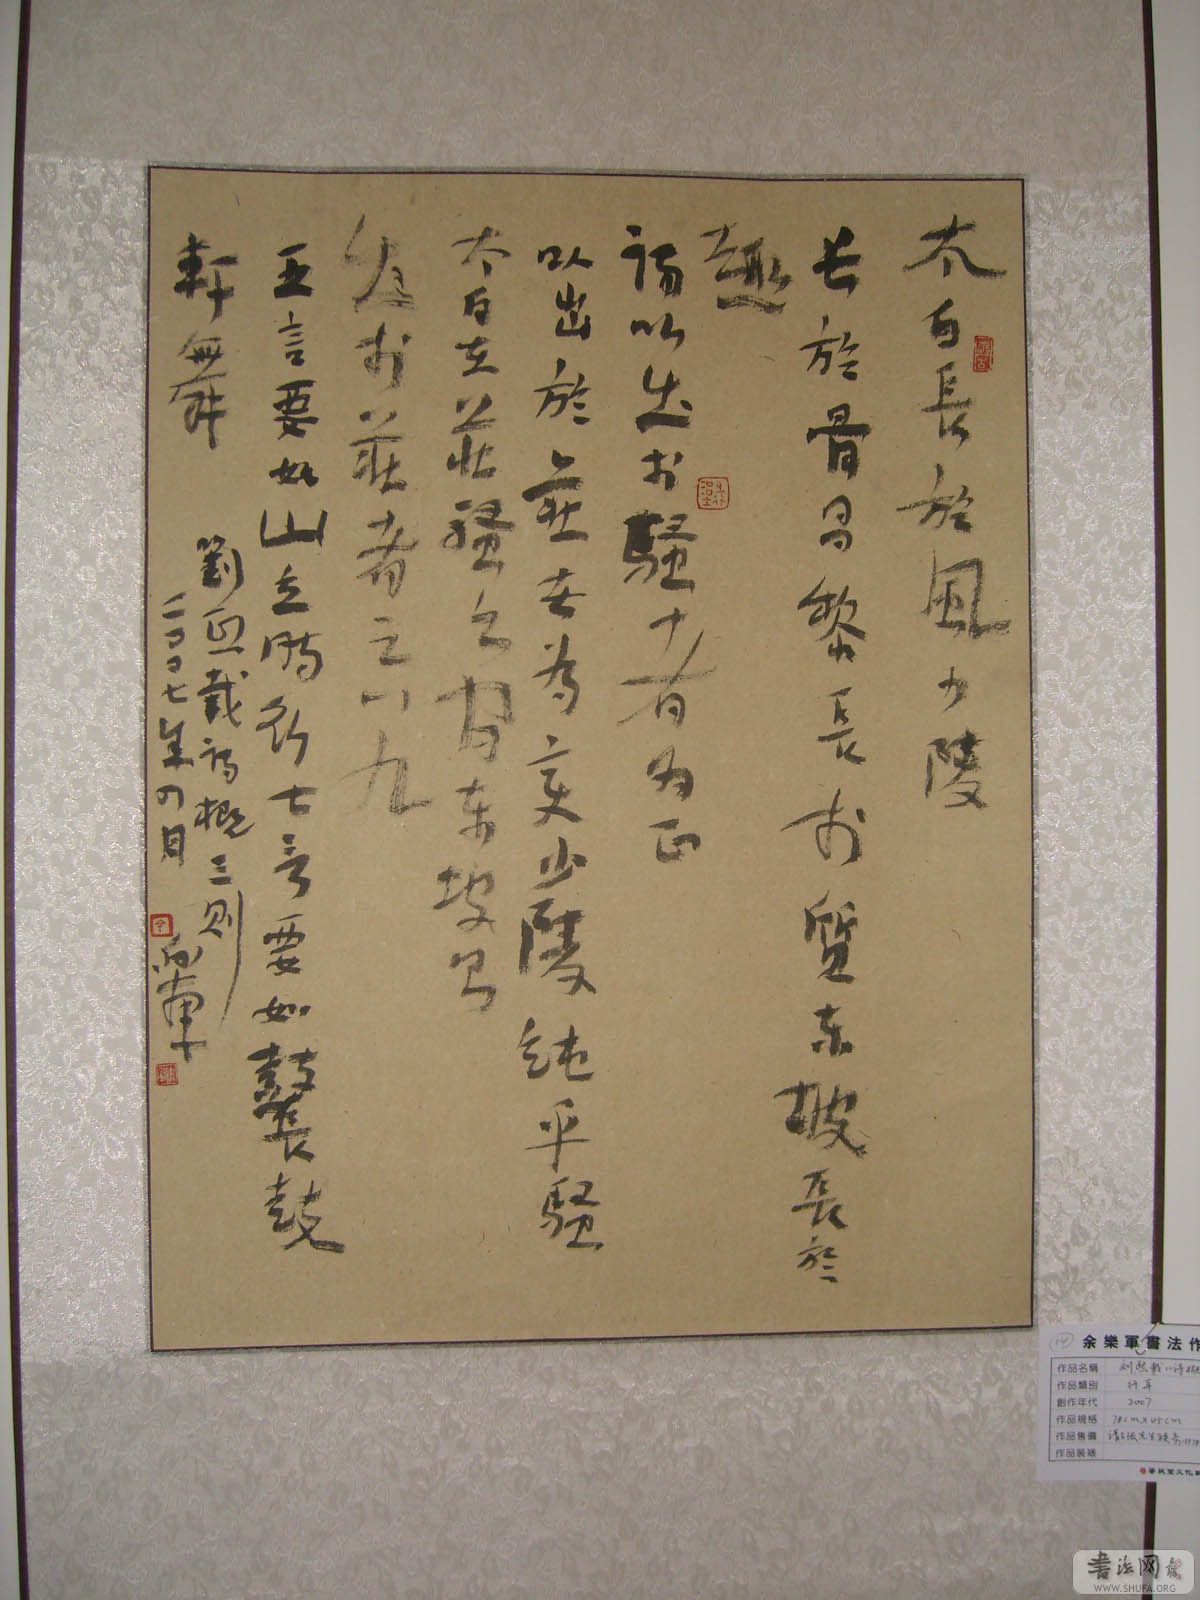 太白長於風少陵
長於骨昌黎長於質東坡長於
趣
詩以出於騷者為正
以出於莊者為變少陵純乎騷
太白在莊騷之間東坡則
出於莊者之八九
五言要如山立時行七言要如鼙鼓
軒舞
劉熙載詩概三則
二〇〇七年四月
余樂軍書法作
作品名稱
作品類別 行草
創作年代 2007
作品規格
作品售價
作品裝裱
書法网
WWW.SHUFA.ORG